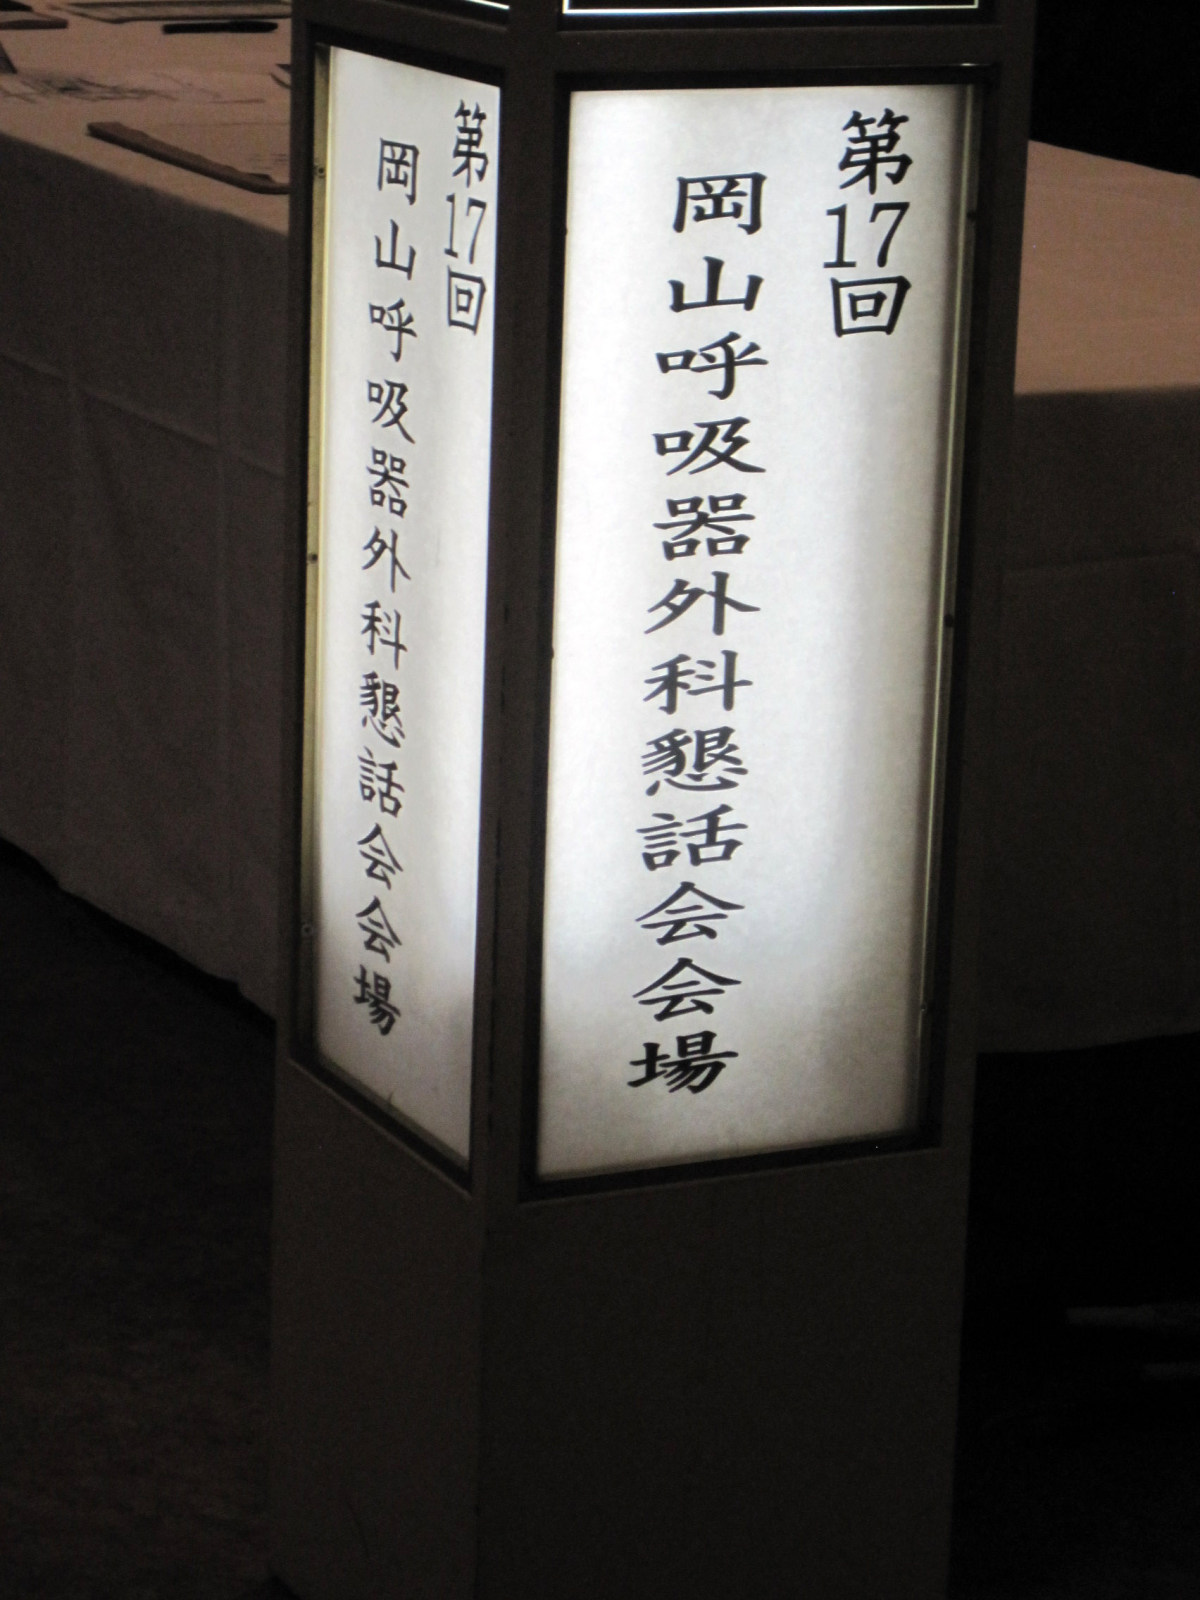 第17回
岡山呼吸器外科懇話会会場
第17回
岡山呼吸器外科懇話会会場